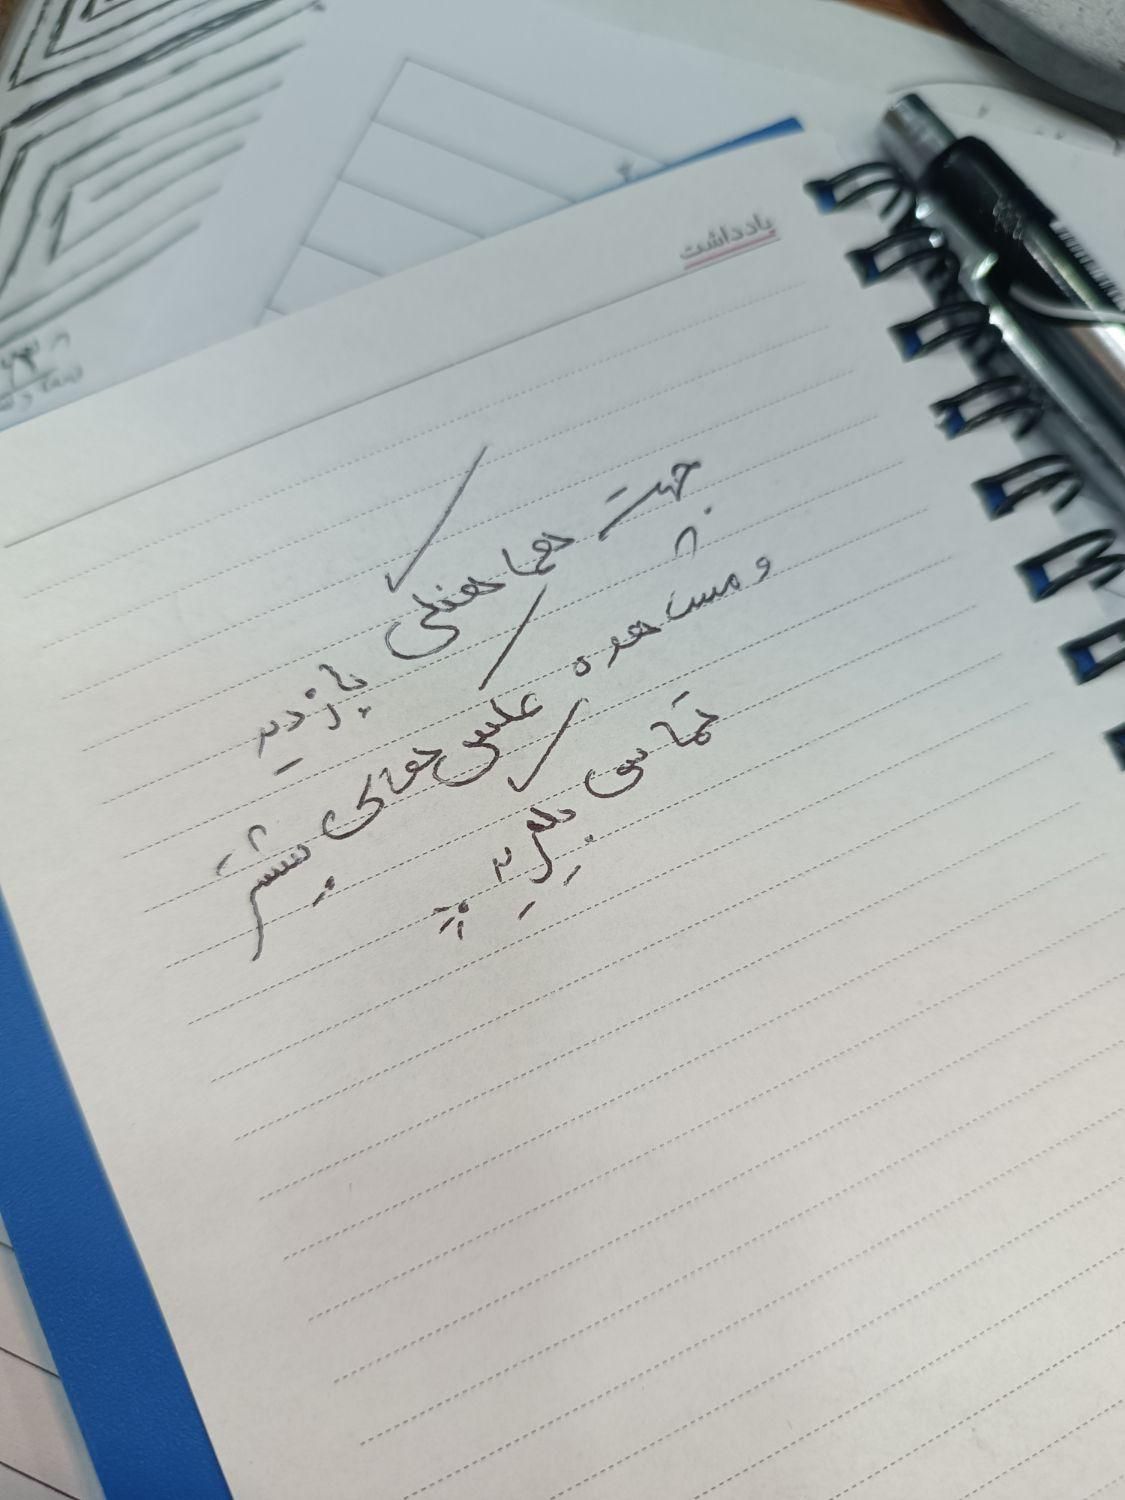 یادداشت
جهت هماهنگی بازدید
و مشاهده عکس های بیشتر
تماس بگیرید